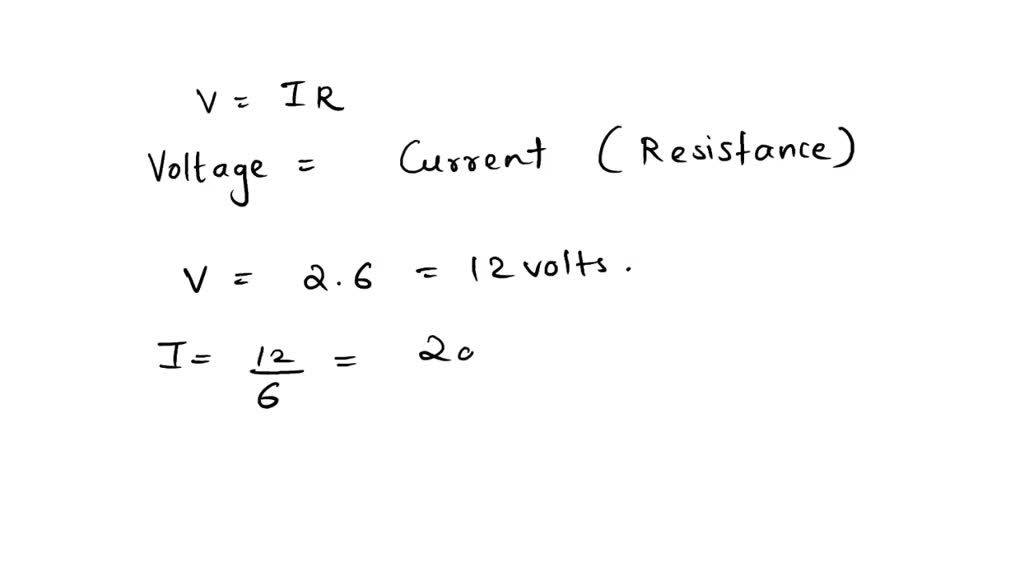 V = IR
Voltage = Current (Resistance)
V = 2.6 = 12 volts.
I = 12/6 = 2